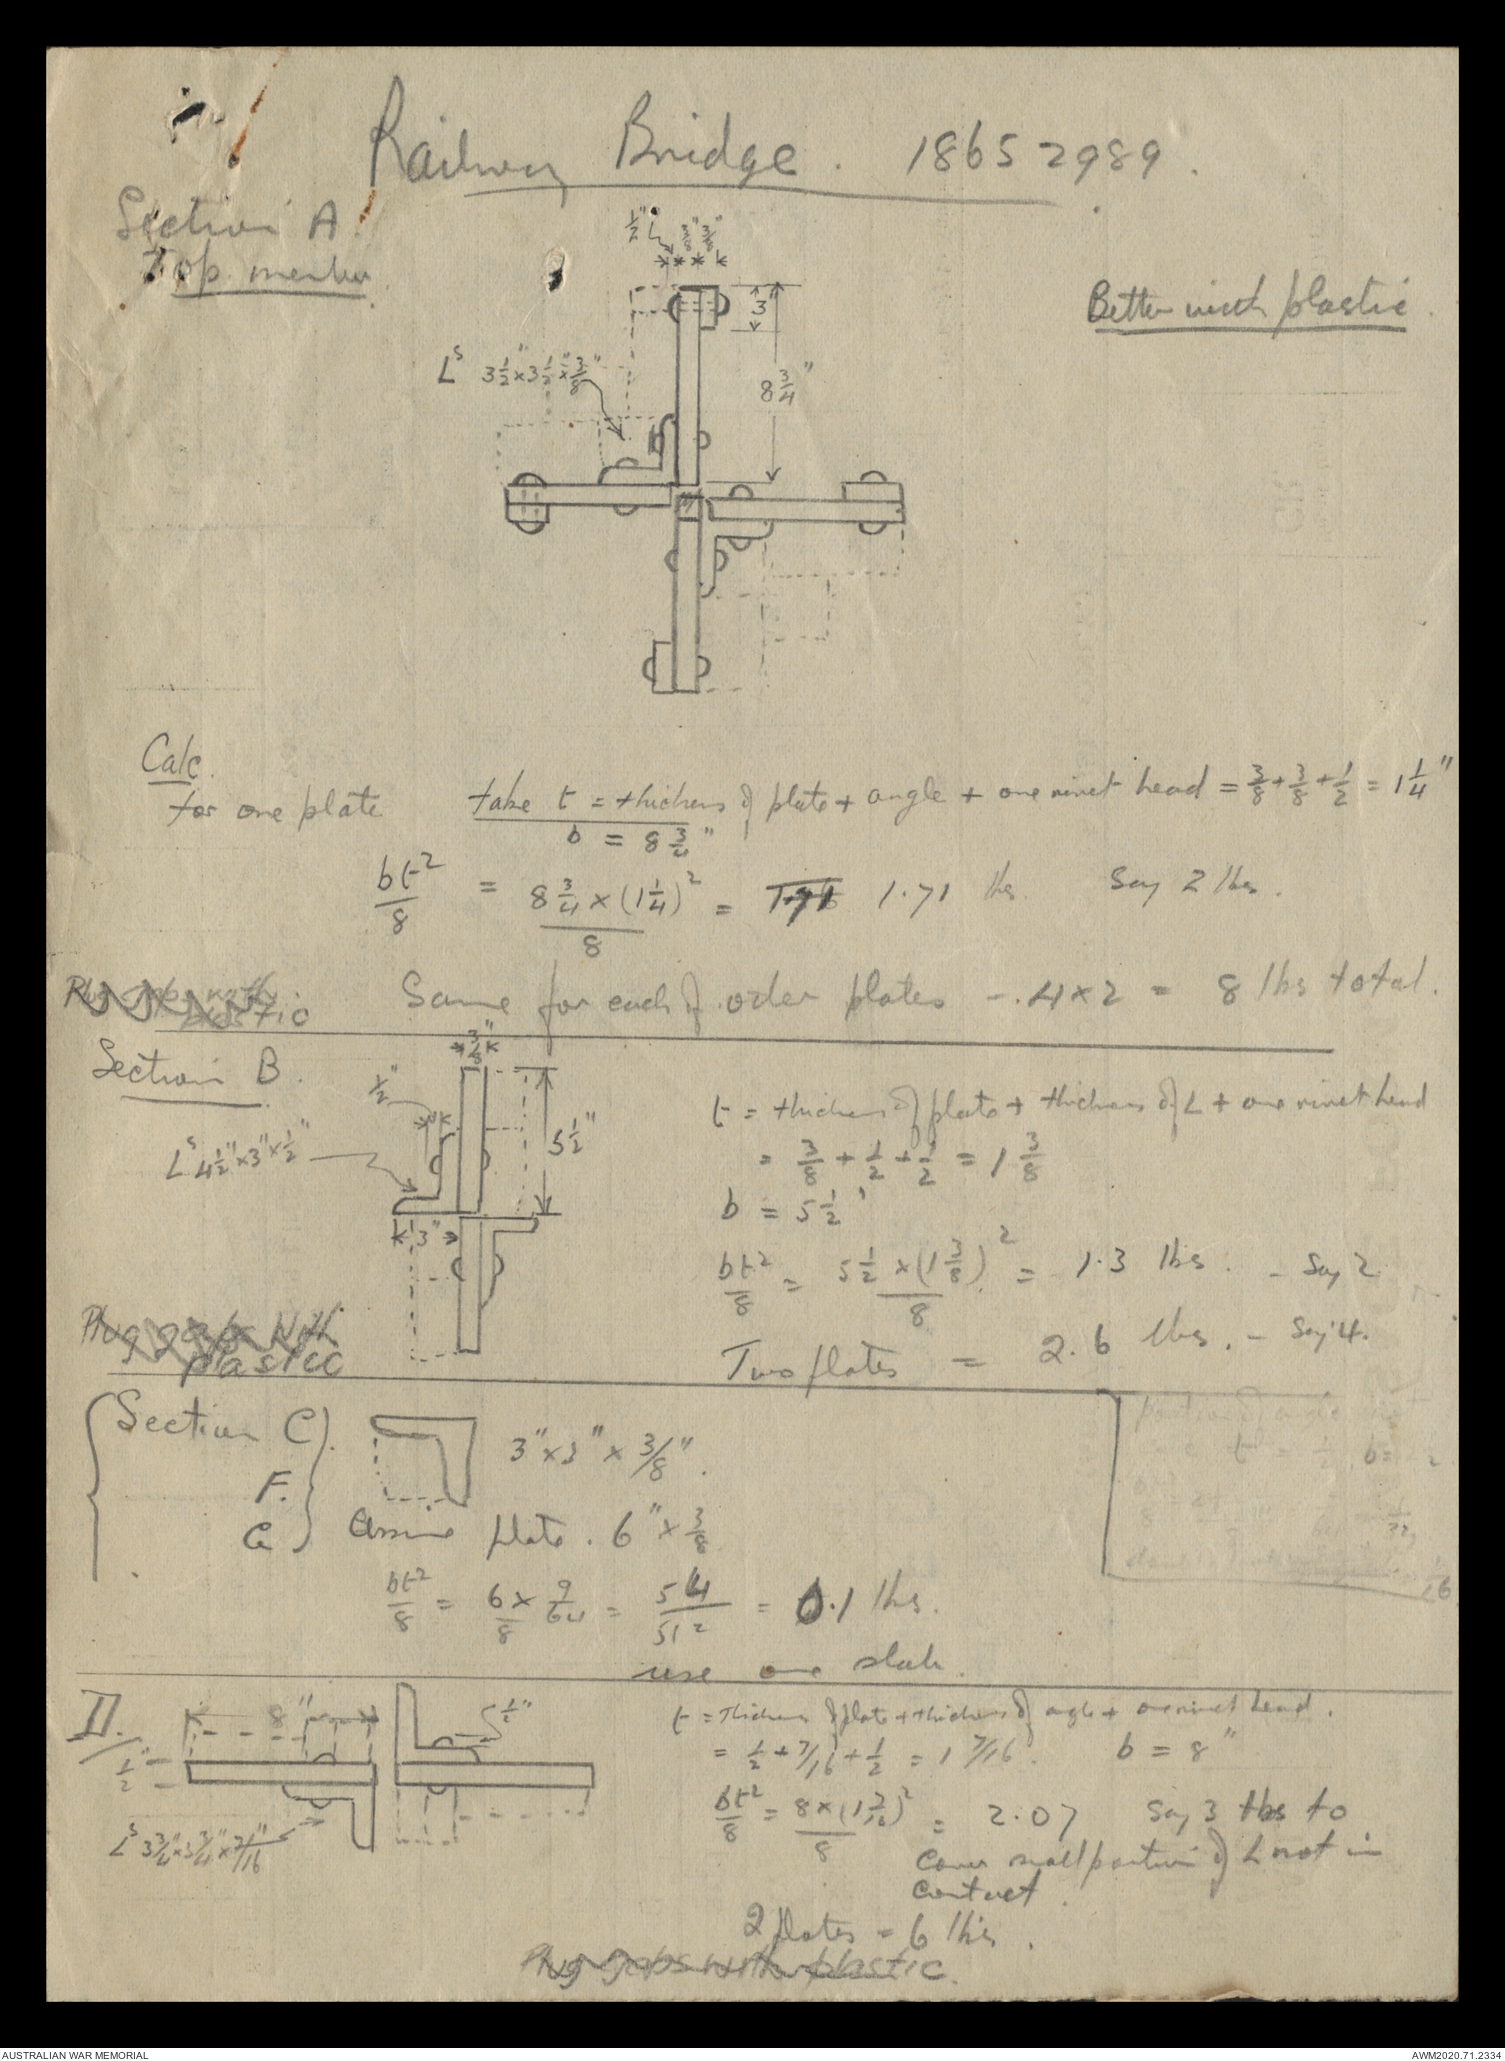 Railway Bridge. 18652989.
Section A.
Top member
Better with plastic.
1/2" 3/8" 3/8"
3"
Ls 3 1/2" x 3 1/2" x 3/8"
8 3/4"
Calc.
for one plate take t = thickness of plate + angle + one rivet head = 3/8 + 3/8 + 1/2 = 1 1/4"
b = 8 3/4"
bt²/8 = 8 3/4 x (1 1/4)²/8 = 1.71 lbs. Say 2 lbs.
Plug gaps with plastic
Same for each of other plates - 4 x 2 = 8 lbs total.
Section B.
3/8"
1/2"
5 1/2"
Ls 4 1/2" x 3" x 1/2"
3"
t = thickness of plate + thickness of L + one rivet head
= 3/8 + 1/2 + 1/2 = 1 3/8
b = 5 1/2"
bt²/8 = 5 1/2 x (1 3/8)²/8 = 1.3 lbs. - Say 2
Two plates = 2.6 lbs. - Say 4.
Plug gaps with
plastic
Section C
F.
G
3" x 3" x 3/8".
Assume plate. 6" x 3/8
bt²/8 = 6/8 x 9/64 = 54/512 = 0.1 lbs.
use one slab.
portion of angle
t = b =
D.
8"
1/2"
1/2"
Ls 3 3/4" x 3 3/4" x 7/16"
t = thickness of plate + thickness of angle + one rivet head.
= 1/2 + 7/16 + 1/2 = 1 7/16. b = 8"
bt²/8 = 8 x (1 7/16)²/8 = 2.07 Say 3 lbs to
cover small portion of L not in
contact.
2 plates = 6 lbs.
Plug gaps with plastic.
AUSTRALIAN WAR MEMORIAL
AWM2020.71.2334